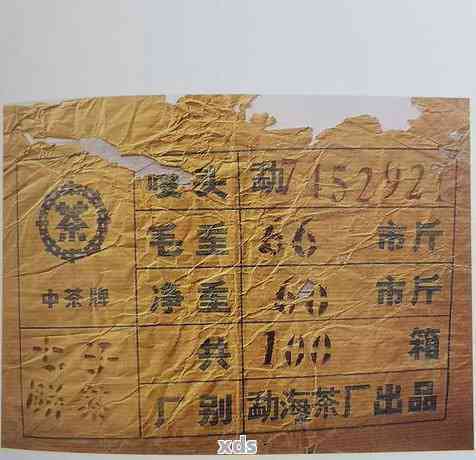 唛头 勐7452927
茶
毛重 市斤
中茶牌
净重 60 市斤
七子
饼茶
共 100 箱
厂别 勐海茶厂出品
xds